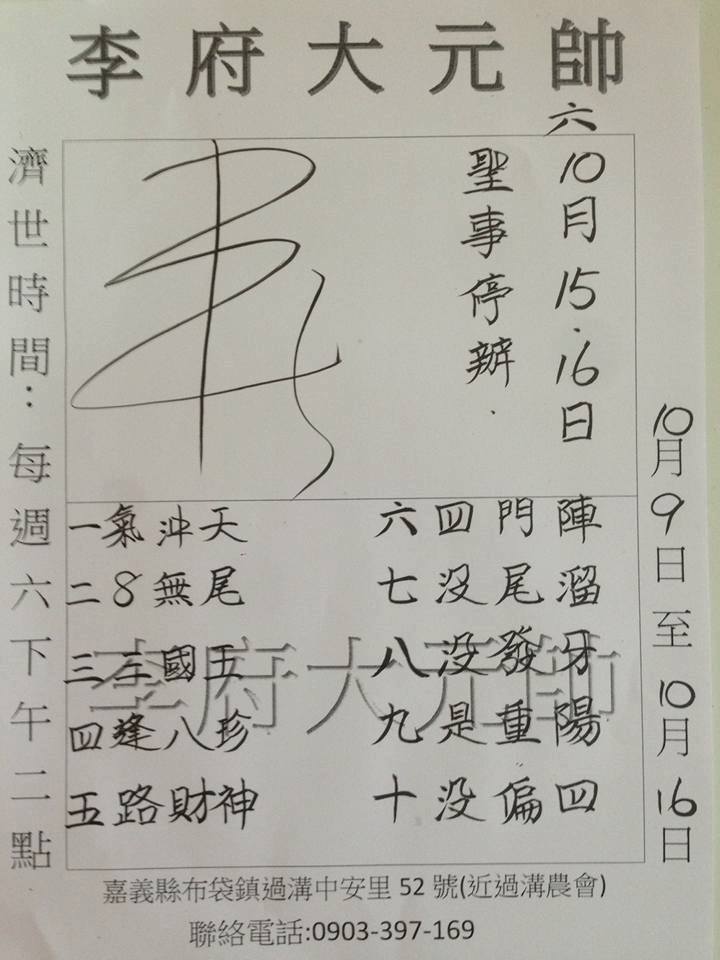 李府大元帥
六
10月15.16日
聖事停辦.
濟世時間：每週六下午二點
10月9日至10月16日
一氣沖天
二8無尾
三三國五
四逢八珍
五路財神
六四門陣
七没尾溜
八没發牙
九是重陽
十没偏四
李府大元帥
嘉義縣布袋鎮過溝中安里 52 號(近過溝農會)
聯絡電話:0903-397-169